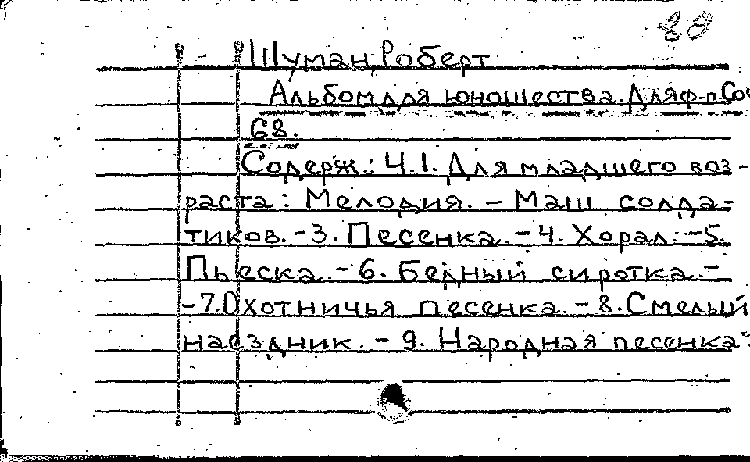 28
Шуман, Роберт
Альбом для юношества. Для ф-п. Соч
68.
Содерж.: Ч.1. Для младшего воз-
раста: Мелодия. - Маш солда-
тиков. - 3. Песенка. - 4. Хорал. - 5.
Пьеска. - 6. Бедный сиротка. -
- 7. Охотничья песенка. - 8. Смелый
наездник. - 9. Народная песенка -